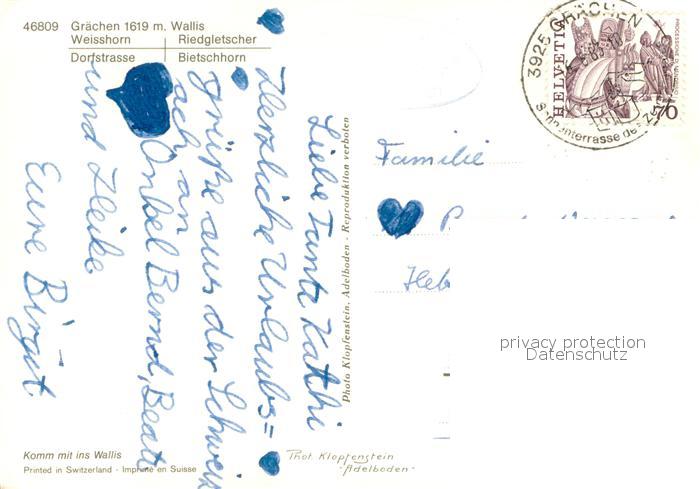 46809 Grächen 1619 m. Wallis
Weisshorn Riedgletscher
Dorfstrasse Bietschhorn
Liebe Tante Kathi
Herzliche Urlaubs=
grüße aus der Schweiz
ach an
Onkel Bernd, Beate
und Heike
Eure Birgit
Photo Klopfenstein, Adelboden - Reproduktion verboten
Komm mit ins Wallis
Printed in Switzerland - Imprimé en Suisse
Phot. Klopfenstein
"Adelboden"
3925 GRÄCHEN
HELVETIA
70
Familie
privacy protection
Datenschutz